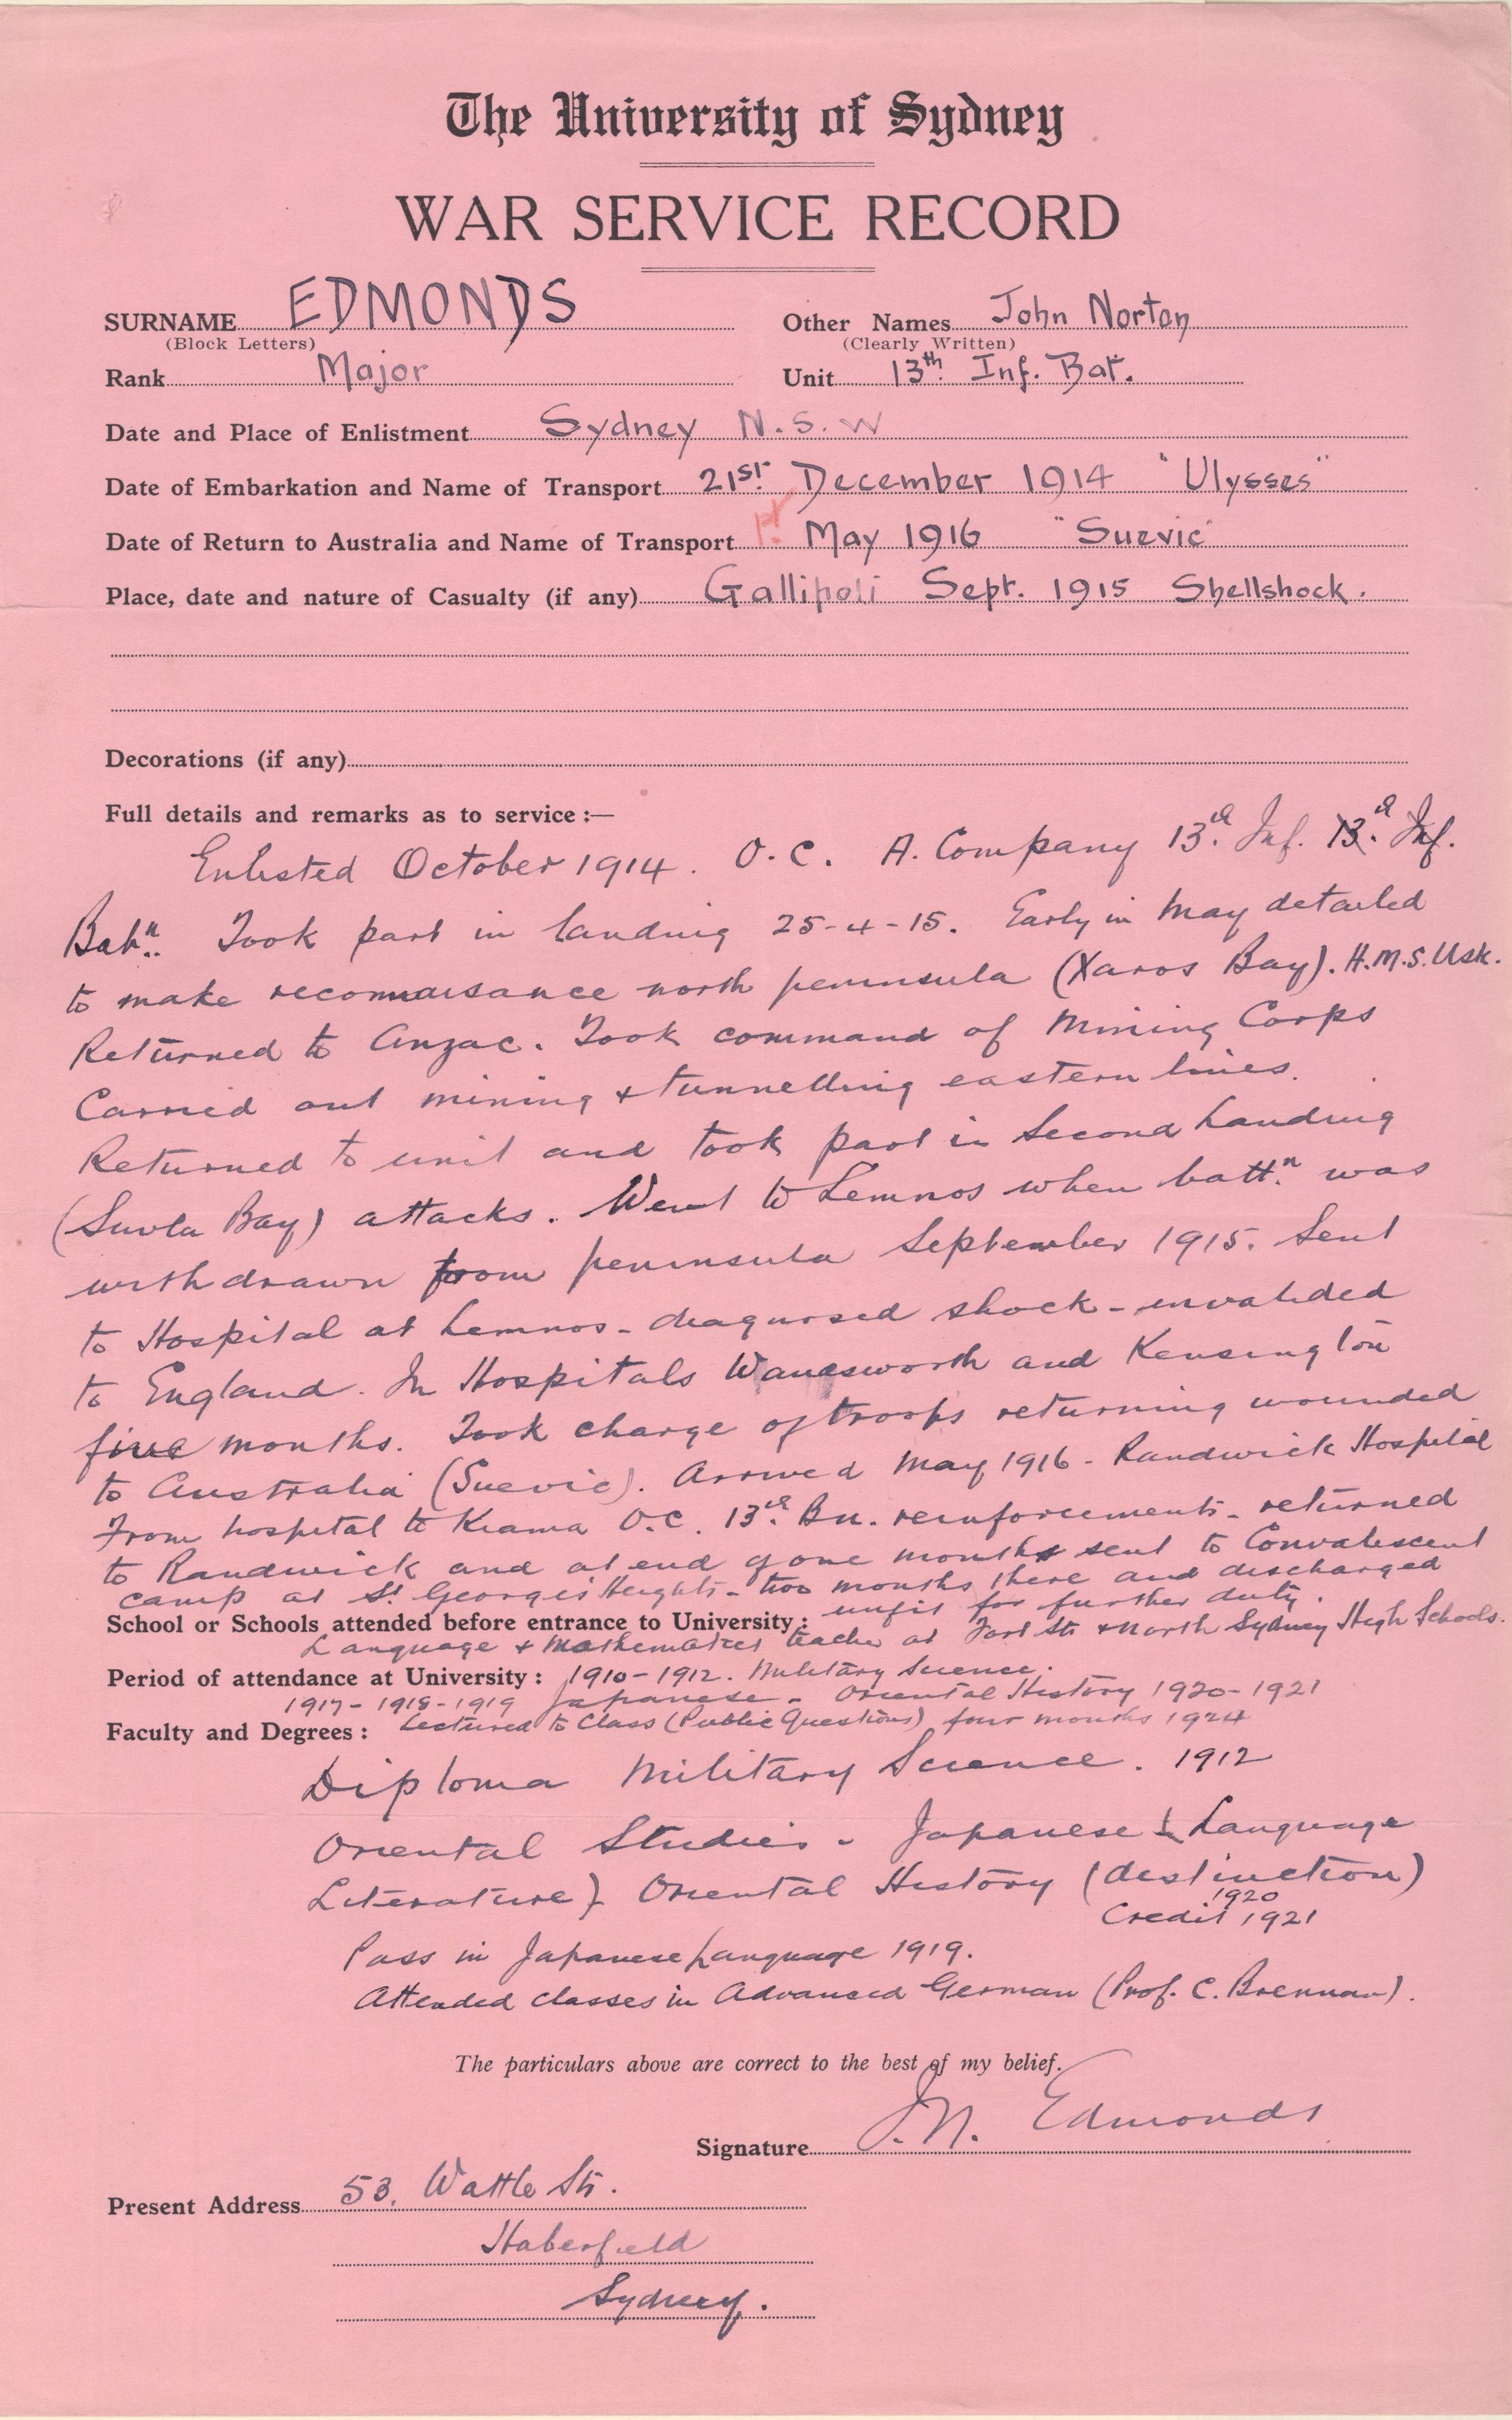 The University of Sydney
WAR SERVICE RECORD
SURNAME EDMONDS Other Names John Norton
(Block Letters) (Clearly Written)
Rank Major Unit 13th Inf. Bat.
Date and Place of Enlistment Sydney N.S.W
Date of Embarkation and Name of Transport 21st December 1914 "Ulysses"
Date of Return to Australia and Name of Transport May 1916 "Suevic"
Place, date and nature of Casualty (if any) Gallipoli Sept. 1915 Shellshock.
Decorations (if any)
Full details and remarks as to service :—
Enlisted October 1914. O.C. A. Company 13th Inf. 13th Inf.
Batn. Took part in landing 25-4-15. Early in May detailed
to make reconnaisance north peninsula (Xaros Bay). H.M.S. Usk.
Returned to Anzac. Took command of Mining Corps
Carried out mining & tunnelling eastern lines.
Returned to unit and took part in Second Landing
(Suvla Bay) attacks. Went to Lemnos when battn. was
withdrawn from peninsula September 1915. Sent
to Hospital at Lemnos - diagnosed shock - invalided
to England. In Hospitals Wandsworth and Kensington
five months. Took charge of troops returning wounded
to Australia (Suevic). Arrived May 1916 - Randwick Hospital
From hospital to Kiama O.C. 13th Bn. reinforcements - returned
to Randwick and at end of one month sent to Convalescent
camp at St. Georges Heights - two months there and discharged
unfit for further duty.
School or Schools attended before entrance to University :
Language & Mathematics teacher at Fort St. & North Sydney High Schools.
Period of attendance at University : 1910-1912. Military Science.
1917-1918-1919 Japanese - Oriental History 1920-1921
Faculty and Degrees : Lectured to Class (Public Questions) four months 1924
Diploma Military Science. 1912
Oriental Studies - Japanese Language
Literature) Oriental History (distinction)
1920
Credit 1921
Pass in Japanese Language 1919.
Attended classes in Advanced German (Prof. C. Brennan).
The particulars above are correct to the best of my belief.
Signature J.N. Edmonds
Present Address 53, Wattle St.
Haberfield
Sydney.